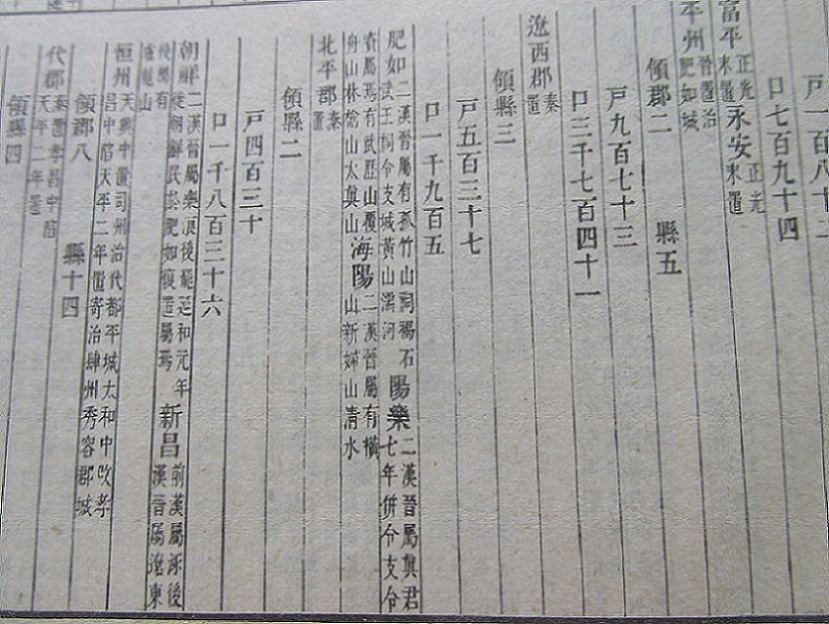 戶一百八十二
口七百九十四
富平正光末置 永安正光末置
平州晉置治肥如城
領郡二 縣五
戶九百七十三
口三千七百四十一
遼西郡秦置
領縣三
戶五百三十七
口一千九百五
肥如二漢晉屬有孤竹山祠碣石武王祠令支城黃山濡河 陽樂二漢晉屬真君七年併令支合
資屬焉有武歷山覆舟山林榆山太真山 海陽二漢晉屬有橫山新婦山清水
北平郡秦置
領縣二
戶四百三十
口一千八百三十六
朝鮮二漢晉屬樂浪後罷延和元年徙朝鮮民於肥如復置屬焉 新昌前漢屬涿後漢晉屬遼東
後屬有盧龍山
恒州天興中置司州治代都平城太和中改孝昌中陷天平二年置寄治肆州秀容郡城
領郡八 縣十四
代郡秦置孝昌中陷天平二年置
領縣四